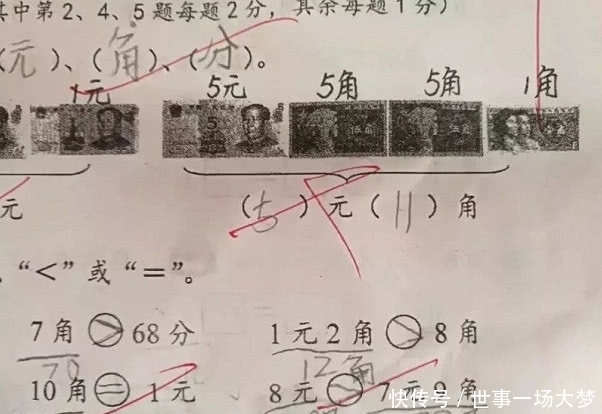 其中第2、4、5题每题2分，其余每题1分）
（元）、（角）、（分）。
1元 5元 5角 5角 1角
元 （5）元（11）角
、“<”或“=”。
7角 > 68分 1元2角 > 8角
70 12角
10角 = 1元 8元 > 7元9角
快传号/世事一场大梦